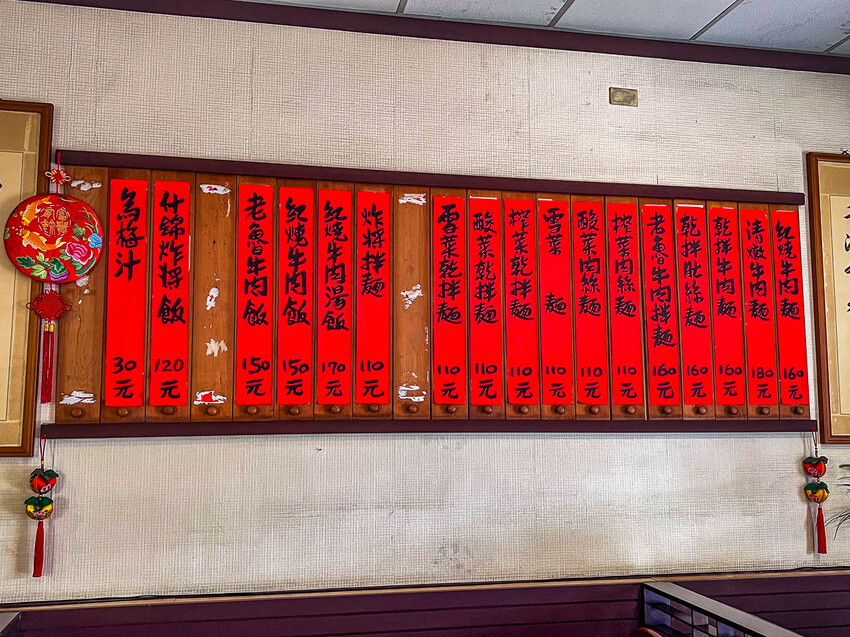 紅燒牛肉麵 160元
清燉牛肉麵 180元
乾拌牛肉麵 160元
乾拌肚絲麵 160元
老魯牛肉拌麵 160元
榨菜肉絲麵 110元
酸菜肉絲麵 110元
雪菜麵 110元
榨菜乾拌麵 110元
酸菜乾拌麵 110元
雪菜乾拌麵 110元
炸將拌麵 110元
紅燒牛肉湯飯 170元
紅燒牛肉飯 150元
老魯牛肉飯 150元
什錦炸將飯 120元
烏梅汁 30元